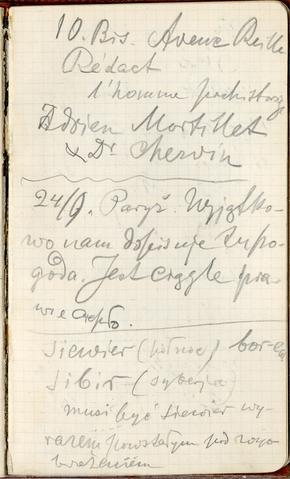 10. Bis. Avenue Reille
Rédact
l'homme préhistorique
Adrien Mortillet
& Dr Chervin
24/9. Paryż. Wyjątko-
wo nam dopisuje tu po-
goda. Jest ciągle pra-
wie ciepło.
siewier (północ) borea
sibir (syberja)
musi być siewier wy-
razem powstałym pod wyo-
brażeniem